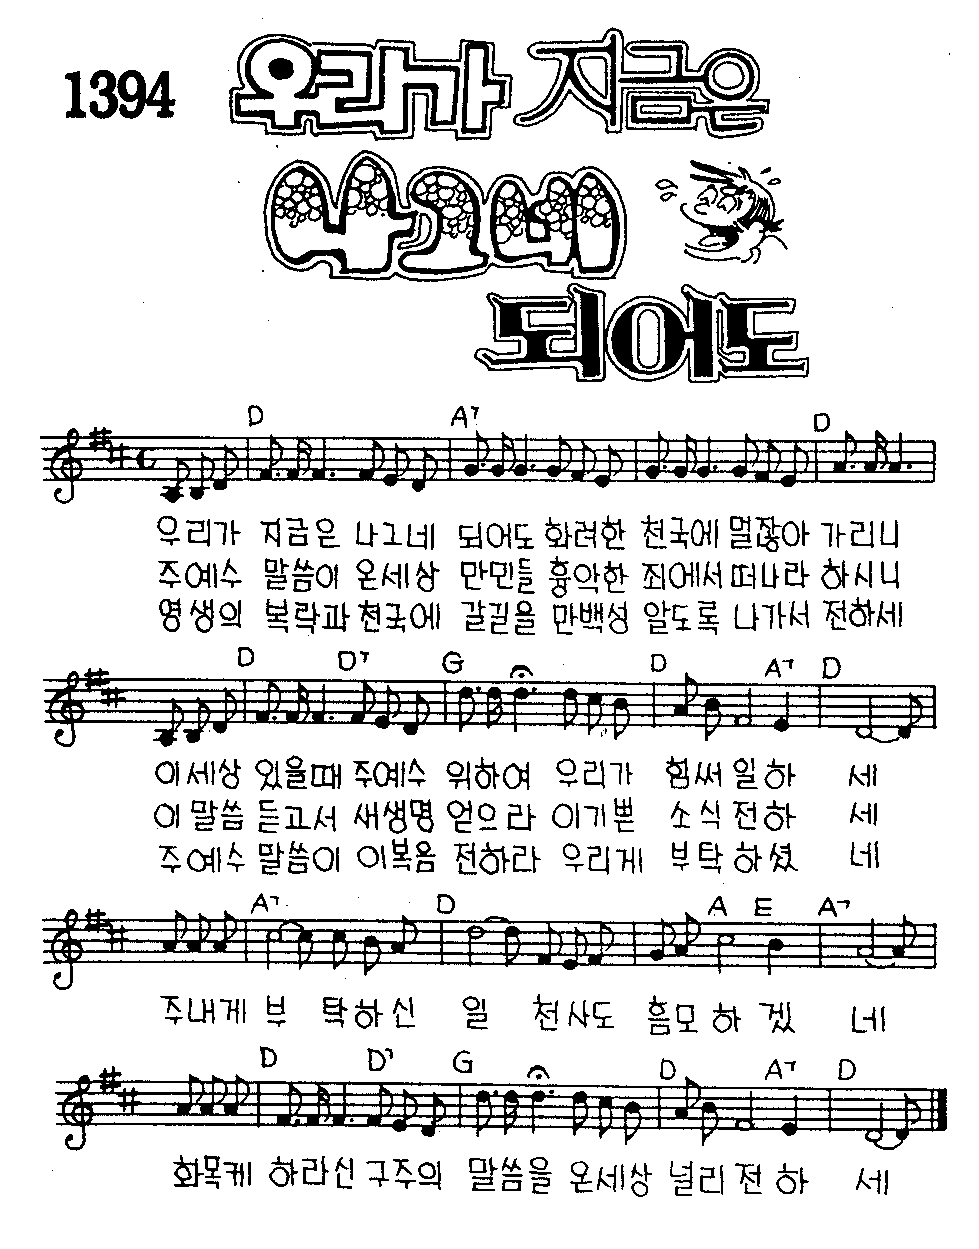 1394 우리가 지금은
나그네
되어도
D A7 D
우리가 지금은 나그네 되어도 화려한 천국에 멀잖아 가리니
주예수 말씀이 온세상 만민들 흉악한 죄에서 떠나라 하시니
영생의 복락과 천국에 갈길을 만백성 알도록 나가서 전하세
D D7 G D A7 D
이세상 있을때 주예수 위하여 우리가 힘써 일하 세
이 말씀 듣고서 새생명 얻으라 이기쁜 소식 전하 세
주예수 말씀이 이복음 전하라 우리게 부탁 하셨 네
A7 D A E A7
주내게 부 탁하신 일 천사도 흠모하 겠 네
D D7 G D A7 D
화목케 하라신 구주의 말씀을 온세상 널리 전 하 세